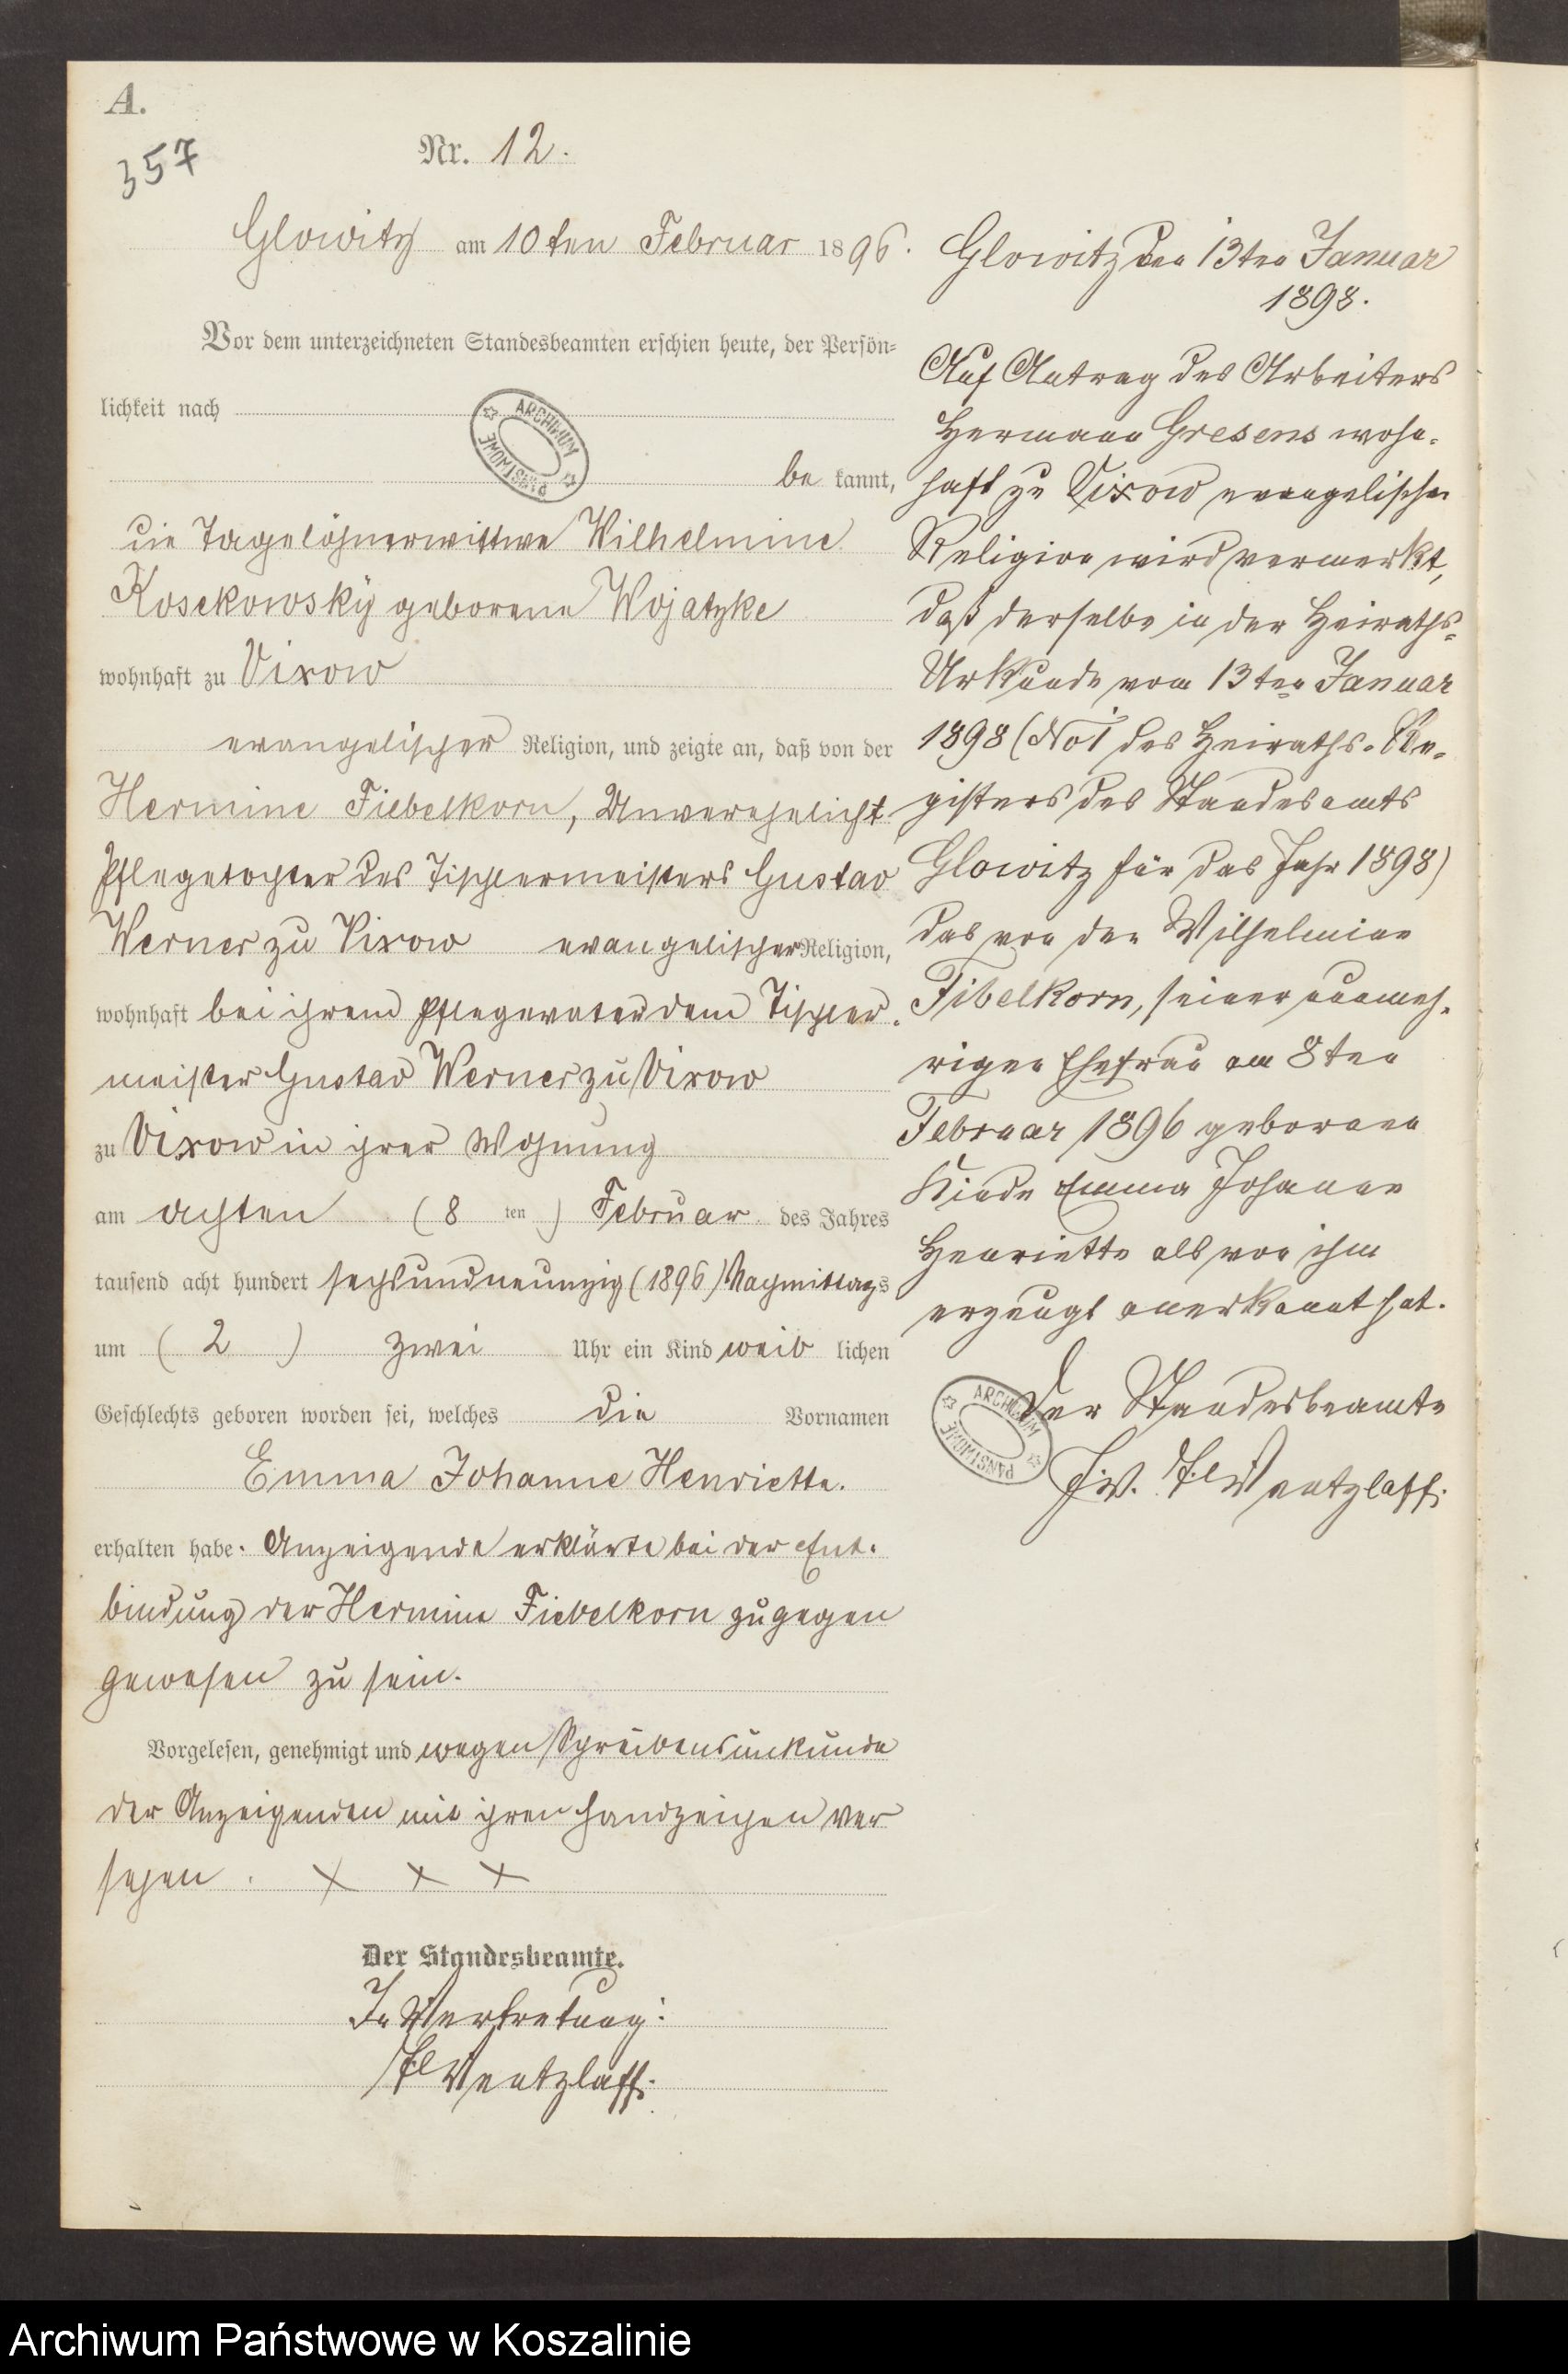 A.
357
Nr. 12.
Glowitz am 10ten Februar 1896.
Vor dem unterzeichneten Standesbeamten erschien heute, der Persön=
lichkeit nach
be kannt,
die Tagelöhnerwittwe Wilhelmine
Kosekowsky geborene Wojatzke
wohnhaft zu Vixow
evangelischer Religion, und zeigte an, daß von der
Hermine Fiebelkorn, Unverehelicht
Pflegetochter des Tischlermeisters Gustav
Werner zu Vixow evangelischer Religion,
wohnhaft bei ihrem Pflegevater dem Tischler-
meister Gustav Werner zu Vixow
zu Vixow in ihrer Wohnung
am achten (8 ten) Februar des Jahres
tausend acht hundert sechsundneunzig (1896) Nachmittags
um (2) zwei Uhr ein Kind weib lichen
Geschlechts geboren worden sei, welches die Vornamen
Emma Johanne Henriette.
erhalten habe. Anzeigende erklärte bei der Ent-
bindung der Hermine Fiebelkorn zugegen
gewesen zu sein.
Vorgelesen, genehmigt und wegen Schreibensunkunde
der Anzeigenden mit ihren Handzeichen ver
sehen. X X X
Der Standesbeamte.
In Vertretung:
Wentzlaff.
Glowitz den 13ten Januar
1898.
Auf Antrag des Arbeiters
Hermann Gresens wohn-
haft zu Vixow evangelischer
Religion wird vermerkt,
daß derselbe in der Heiraths=
Urkunde vom 13ten Januar
1898 (No 1 des Heiraths-Re-
gisters des Standesamts
Glowitz für das Jahr 1898)
das von der Wilhelmine
Fibelkorn, seiner nunmeh-
rigen Ehefrau am 8ten
Februar 1896 geborene
Kinde Emma Johanne
Henriette als von ihm
erzeugt anerkannt hat.
Der Standesbeamte
J.V. Wentzlaff.
ARCHIWUM
PAŃSTWOWE
ARCHIWUM
PAŃSTWOWE
Archiwum Państwowe w Koszalinie